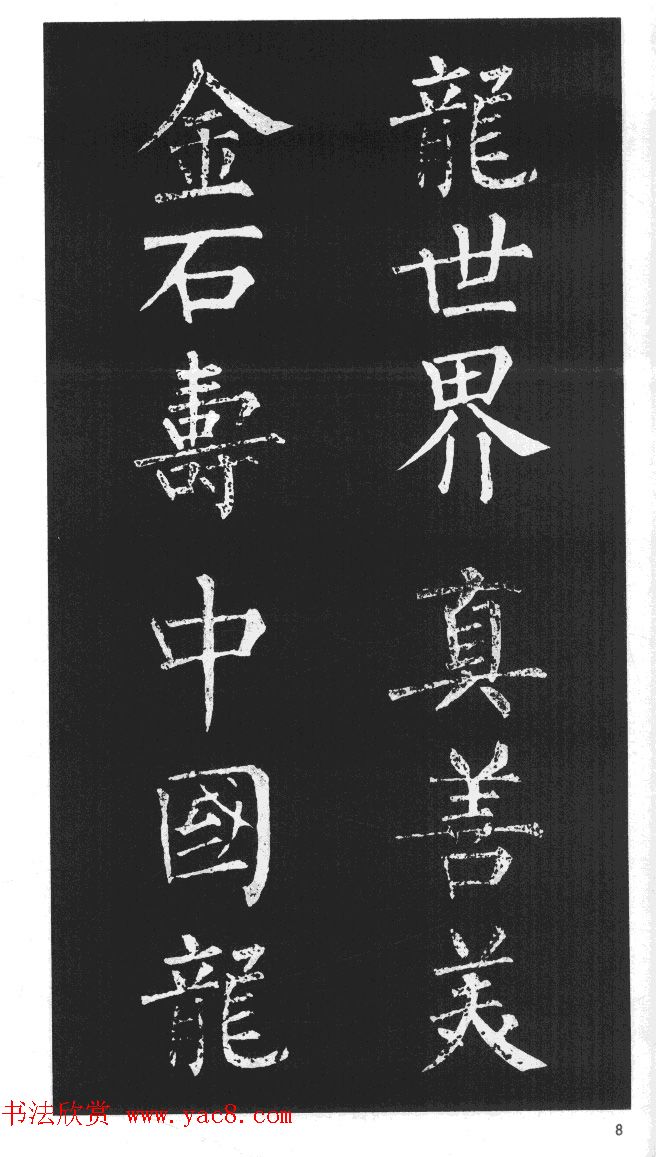 龍世界真善美
金石壽中國龍
书法欣赏 www.yac8.com
8